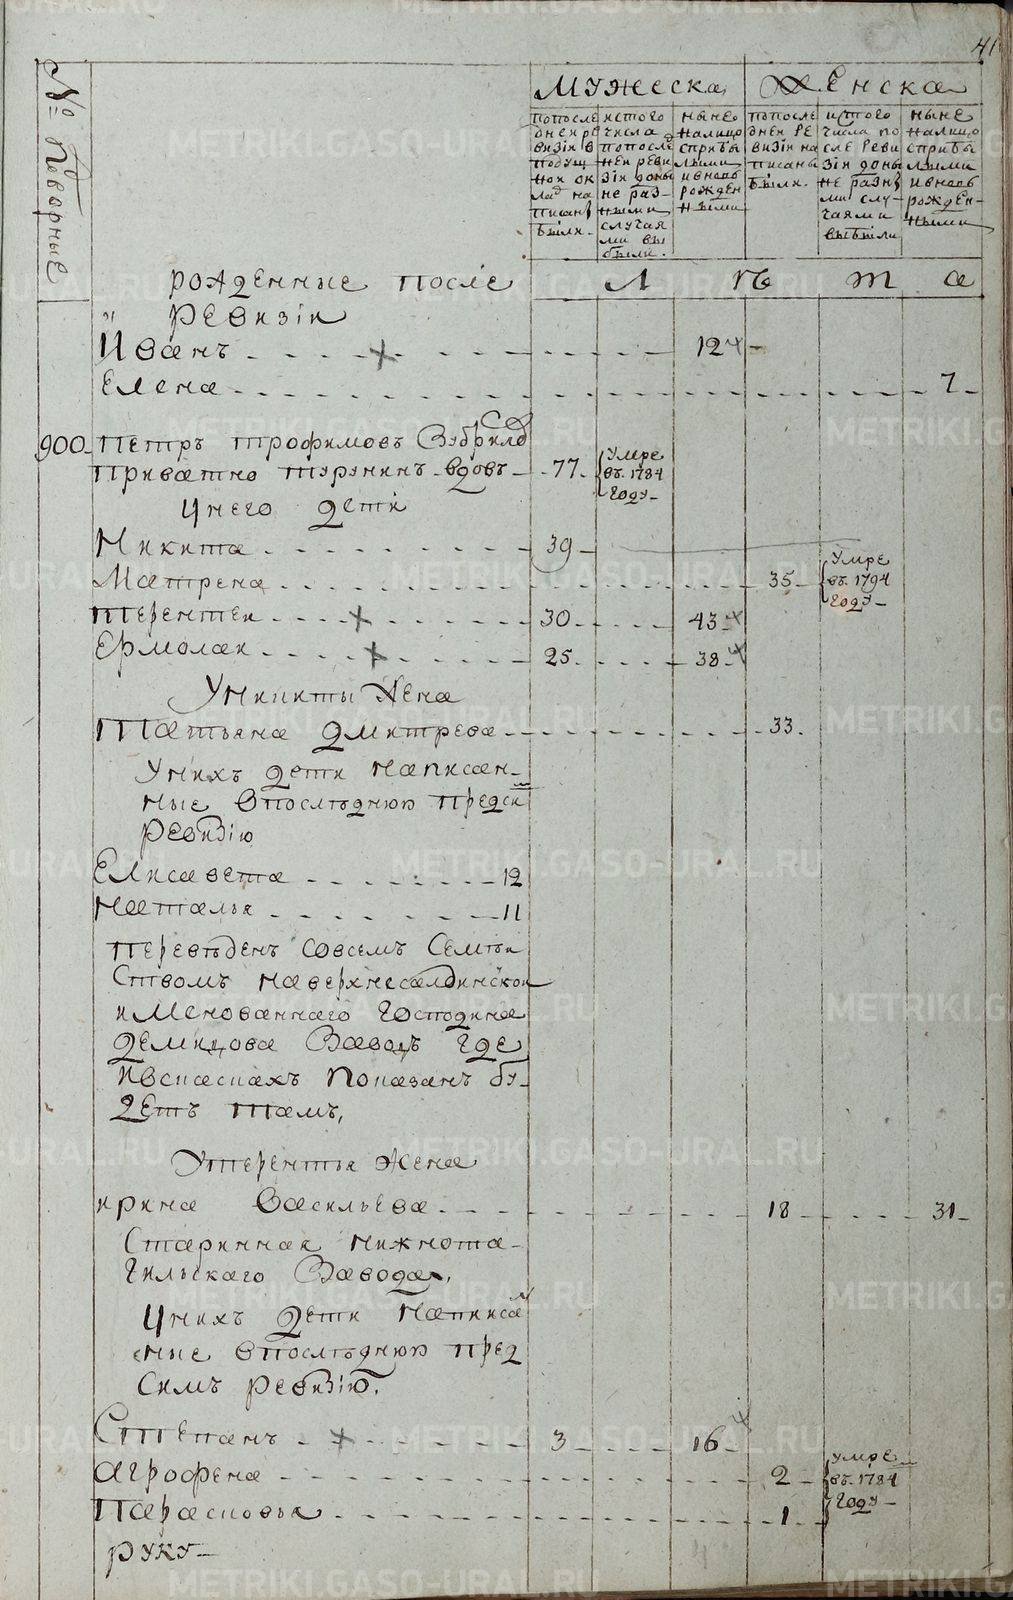 41
№ Дворные
Мужеска
Женска
по после
дней ре
визіи в
подуш
ной ок
лад на
писан
были.
ис того
числа
по послѣд
ней реви
зіи до ны
не раз-
ными
случая
ми вы
были.
ныне
налицо
с прибы
лыми
и вновь
рожден
ными
по после
дней ре
визіи на
писаны
были.
ис того
числа по
сле реви
зіи до ны
не разны
ми слу-
чаями
выбыли
ныне
налицо
с прибы
лыми
и вновь
рожден-
ными
Л ѣ т а
рожденные после
ревизіи
Иванъ 12
Елена 7
900 Петръ Трофимовъ
приватно Турунинъ вдовъ 77 умре въ 1784 году
У него дети
Никита 39
Матрена 35 умре въ 1794 году
Терентей 30 43
Ермолай 25 38
У Никиты жена
Татьяна Дмитрева 33
У нихъ дети написан-
ные в последнюю пред сим
ревизію
Елисавета 12
Наталья 11
переведенъ со всемъ семей
ством на верхнесалдинской
имянованнаго господина
Демидова завод где
и в списках показан бу-
дет тамъ,
У Терентья жена
Ирина Васильева 18 31
Старинная нижнота-
гильскаго завода,
У нихъ дети написан
ные в последнюю пред
симъ ревизію,
Степанъ 3 16
Агрофена 2 умре въ 1784 году
Парасковья 1
руку
METRIKI.GASO-URAL.RU